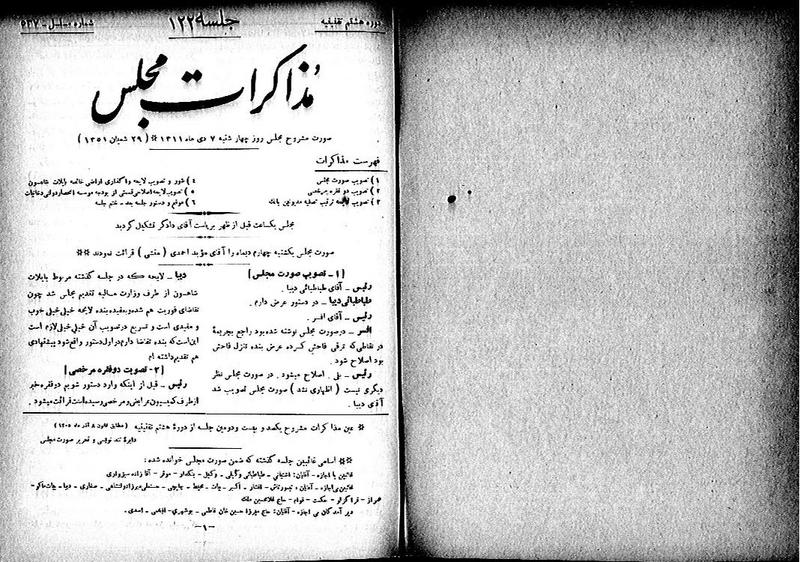 دوره هشتم تقنینیه
جلسه ۱۲۲
شماره مسلسل - ۵۳۷
مذاکرات مجلس
صورت مشروح مجلس روز چهار شنبه ۷ دی ماه ۱۳۱۱ * (۲۹ شعبان ۱۳۵۱)
فهرست مذاکرات
۱) تصویب صورت مجلس
۲) تصویب دو فقره مرخصی
۳) تصویب لایحه ترتیب تصفیه مدیونین بانک
۴) شور و تصویب لایحه واگذاری اراضی خالصه بایلات شاهسون
۵) تصویب لایحه اصلاحی قسمتی از بودجه موسسه انحصار دولتی دخانیات
۶) موقع و دستور جلسه بعد - ختم جلسه
مجلس یکساعت قبل از ظهر بریاست آقای دادگر تشکیل گردید
صورت مجلس یکشنبه چهارم دیماه را آقای مؤید احمدی (منشی) قرائت نمودند **
[۱ - تصویب صورت مجلس]
رئیس - آقای طباطبائی دیبا.
طباطبائی دیبا - در دستور عرض دارم.
رئیس - آقای افسر.
افسر - در صورت مجلس نوشته شده بود راجع بجریمهٔ
در نقاطی که ترقی فاحش کرده عرض بنده تنزل فاحش
بود اصلاح شود.
رئیس - بلی. اصلاح میشود. در صورت مجلس نظر
دیگری نیست (اظهاری نشد) صورت مجلس تصویب شد
آقای دیبا.
دیبا - لایحه که در جلسه گذشته مربوط بایلات
شاهسون از طرف وزارت مالیه تقدیم مجلس شد چون
تقاضای فوریت هم شده و بعقیده بنده لایحه خیلی خیلی خوب
و مفیدی است و تسریع در تصویب آن خیلی خیلی لازم است
این است که بنده تقاضا دارم در اول دستور واقع شود پیشنهادی
هم تقدیم داشته ام
[۲ - تصویب دو فقره مرخصی]
رئیس - قبل از اینکه وارد دستور شویم دو فقره خبر
از طرف کمیسیون عرایض و مرخصی رسیده است قرائت میشود.
* عین مذاکرات مشروح یکصد و بیست و دومین جلسه از دورهٔ هشتم تقنینیه (مطابق قانون ۸ آذر ماه ۱۳۰۵)
دایرهٔ تند نویسی و تحریر صورت مجلس
** اسامی غائبین جلسه گذشته که ضمن صورت مجلس خوانده شده:
غائبین با اجازه - آقایان: آشتیانی - طباطبائی وکیلی - وکیل - یکانی - موقر - آقا زاده سبزواری
- حاج غلامحسین ملک
دیر آمدگان بی اجازه - آقایان: حاج میرزا حسین خان فاطمی - بوشهری - - اسدی.
- ۱ -